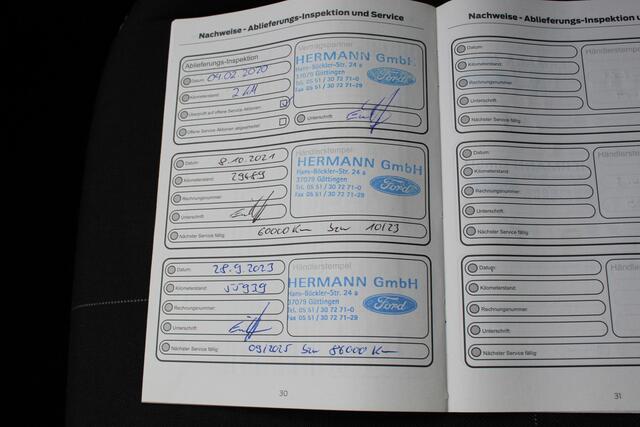 Nachweise - Ablieferungs-Inspektion und Service
Ablieferungs-Inspektion
Datum: 04.02.2020
Kilometerstand:
Überprüft auf offene Service-Aktionen:
Offene Service-Aktionen abgearbeitet:
Vertragspartner
HERMANN GmbH
Hans-Böckler-Str. 24 a
37079 Göttingen
Tel. 05 51 / 30 72 71-0
Fax 05 51 / 30 72 71-29
Ford
Unterschrift:
Datum: 8.10.2021
Kilometerstand: 29689
Rechnungsnummer:
Unterschrift:
Nächster Service fällig: 60000 Km bzw 10/23
Händlerstempel
HERMANN GmbH
Hans-Böckler-Str. 24 a
37079 Göttingen
Tel. 05 51 / 30 72 71-0
Fax 05 51 / 30 72 71-29
Ford
Datum: 28.9.2023
Kilometerstand: 55939
Rechnungsnummer:
Unterschrift:
Nächster Service fällig: 09/2025 bzw 86000 Km
Händlerstempel
HERMANN GmbH
Hans-Böckler-Str. 24 a
37079 Göttingen
Tel. 05 51 / 30 72 71-0
Fax 05 51 / 30 72 71-29
Ford
30
Nachweise - Ablieferungs-Inspektion u
Datum:
Kilometerstand:
Rechnungsnummer:
Unterschrift:
Nächster Service fällig:
Händlerstem
Datum:
Kilometerstand:
Rechnungsnummer:
Unterschrift:
Nächster Service fällig:
Händlerste
Datum:
Kilometerstand:
Rechnungsnummer:
Unterschrift:
Nächster Service fällig:
Händlerst
31